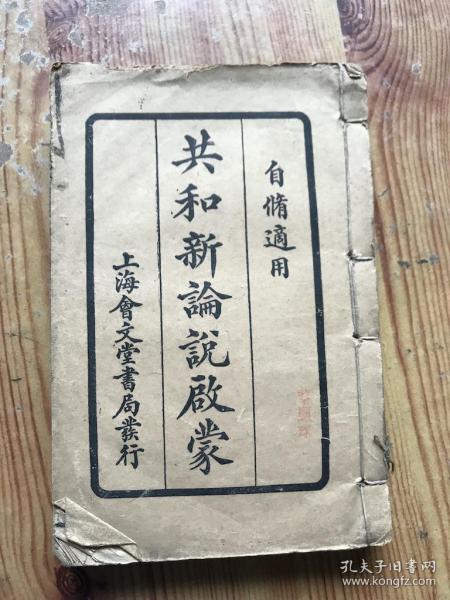 自脩適用
共和新論說啟蒙
上海會文堂書局發行
孔夫子旧书网
www.kongfz.com